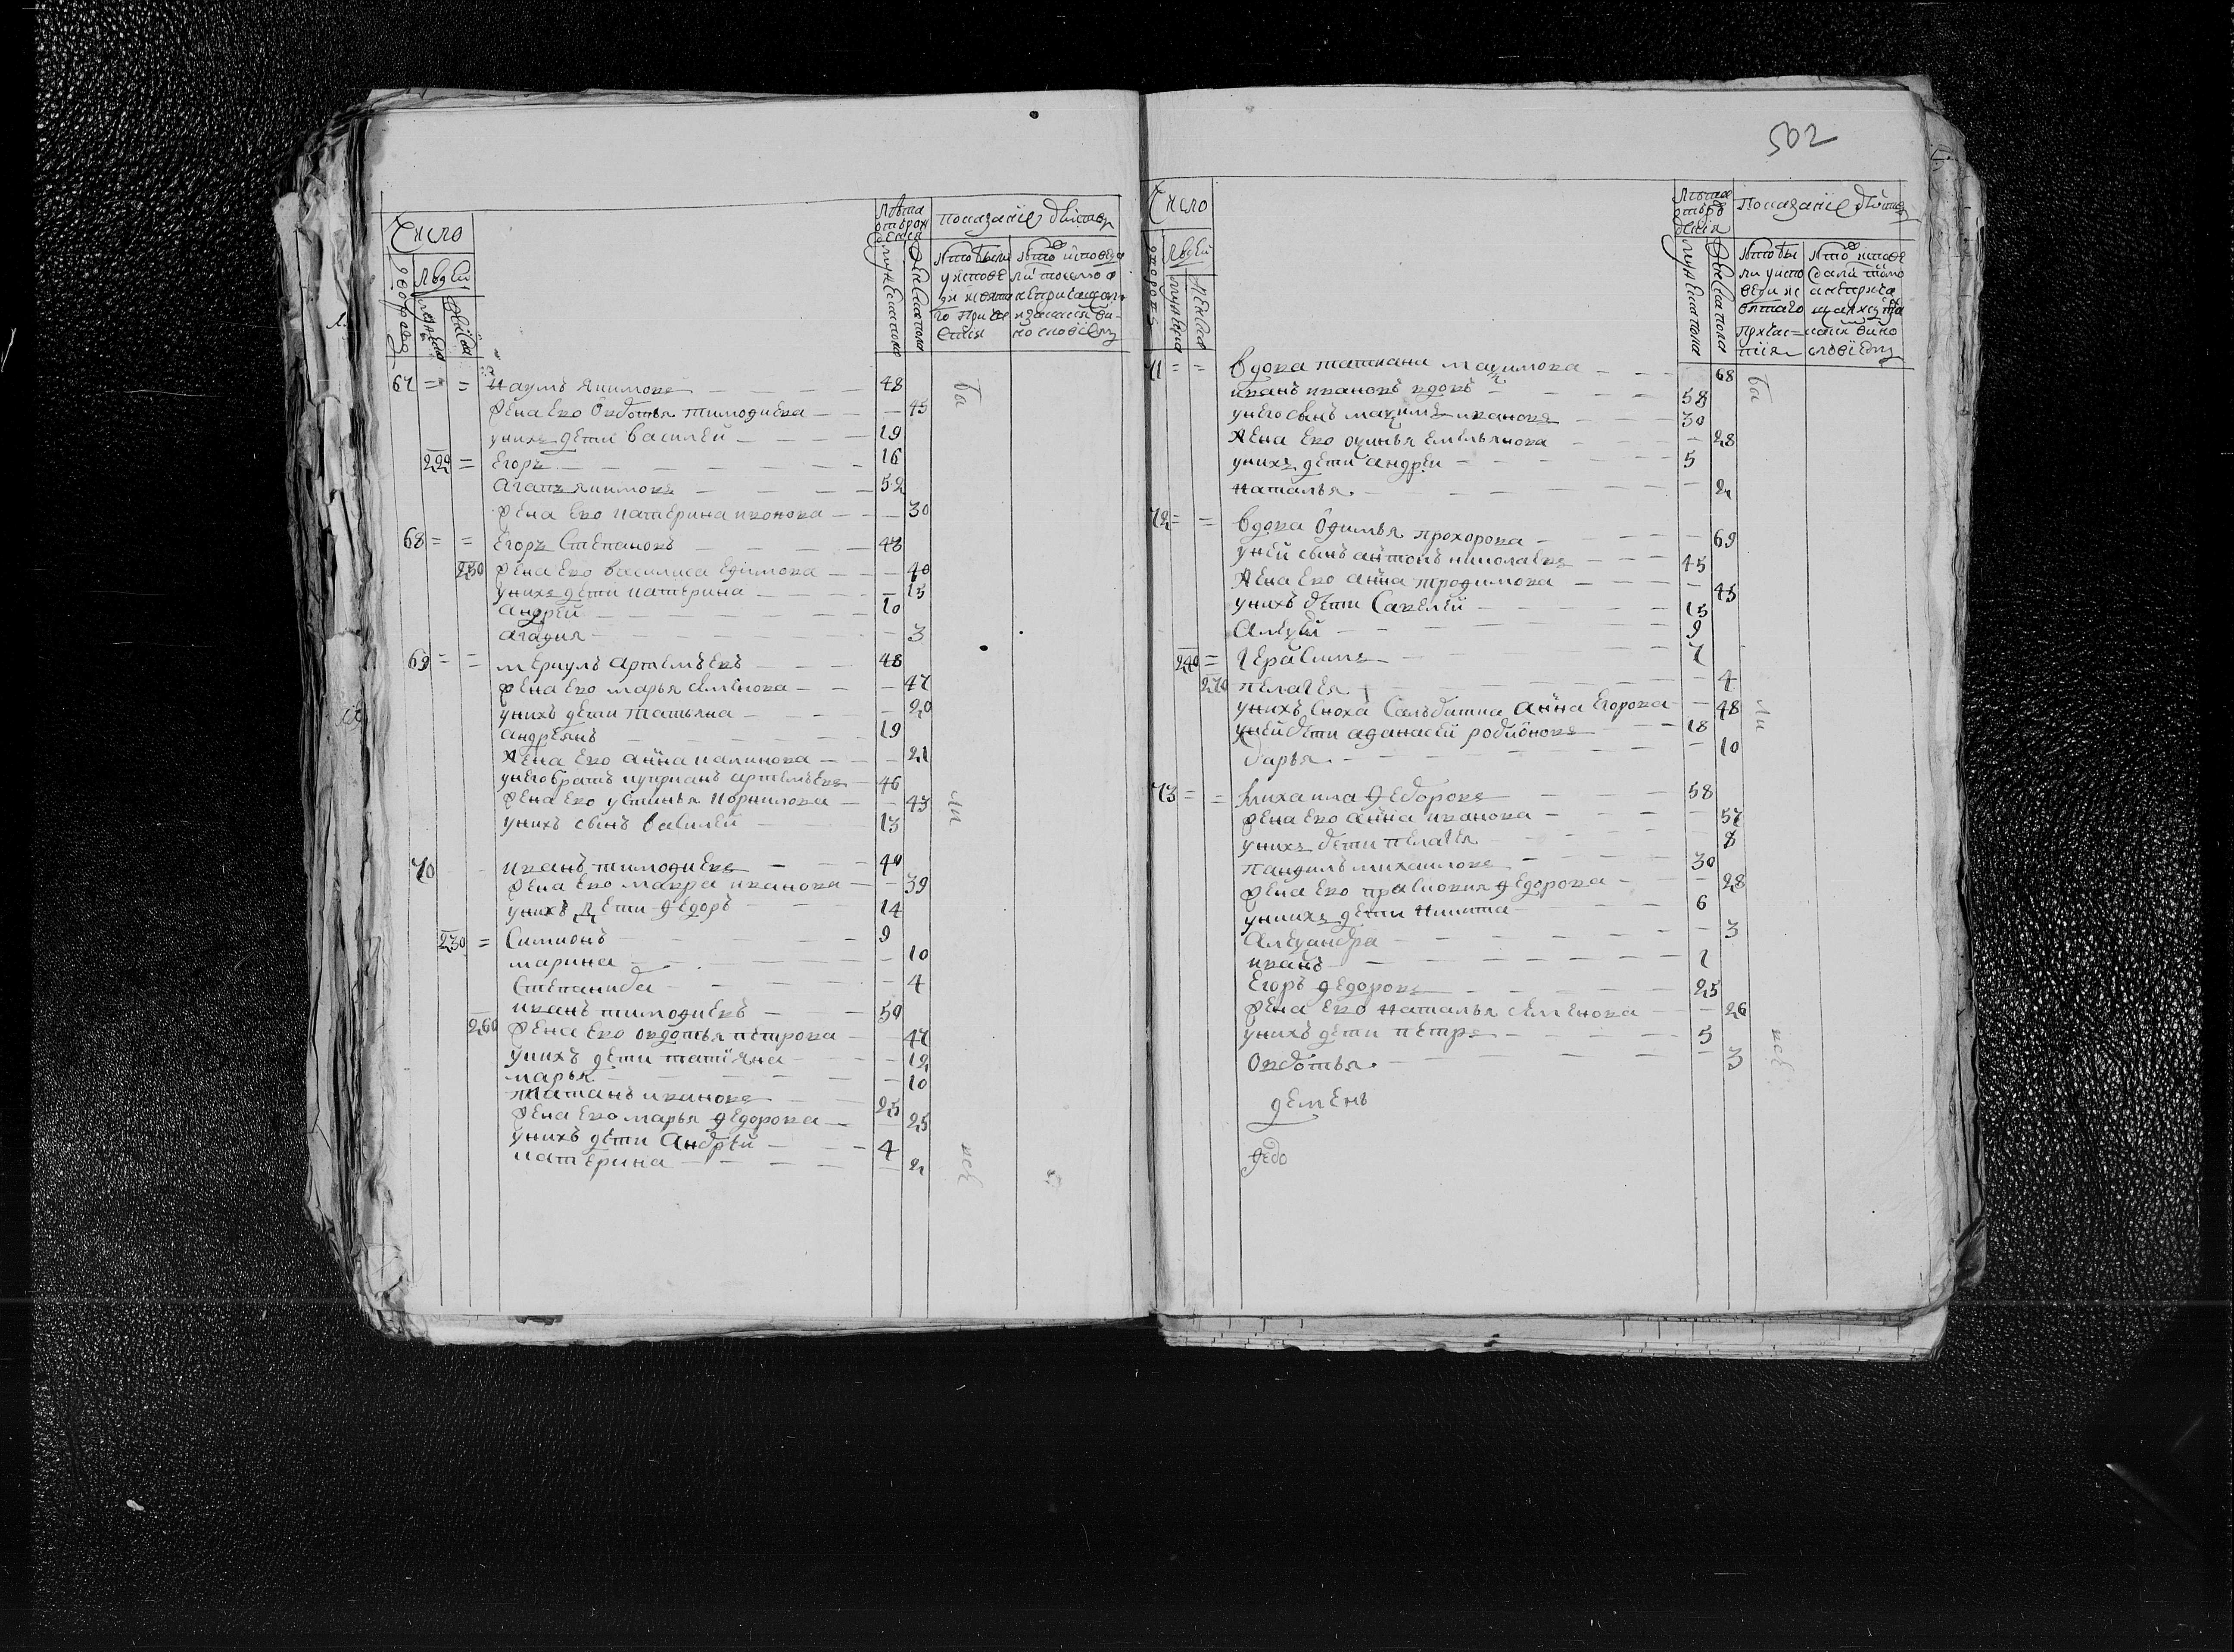 Число
Людей
Лѣта отъ рожденія
Показаніе дѣйств
67 = = Наумъ якимовъ — — — 48
жена ево овдотья тимофиева — — 45
унихъ дети василей — — — 19
229 = Егоръ — — — — 16
агапъ якимовъ — — — — 52
жена ево катерина ивонова — — 30
68 = = Егоръ Степановъ — — — 48
250 жена ево василиса ефимова — — 40
унихъ дети катерина — — — 15
андрей — — — — 10
агафия — — — — 3
69 = = меркулъ артемъевъ — — — 48
жена ево марья семенова — — — 47
унихъ дети татьяна — — — 20
андреянъ — — — — 19
жена ево анна калинова — — — 21
унего братъ куприанъ артемъевъ — 46
жена ево устинья корнилова — — 43
унихъ сынъ василей — — — 13
70 иванъ тимофиевъ — — — 40
жена ево мавра иванова — — 39
унихъ дети федоръ — — — 14
230 = Симионъ — — — — 9
марина — — — — 10
Степанида — — — — 4
иванъ тимофиевъ — — — 50
260 жена ево овдотья петрова — — 47
унихъ дети татияна — — — 12
марья — — — — 10
платанъ ивановъ — — — 25
жена ево марья федорова — — 25
унихъ дети Андрей — — — 4
катерина — — — — 2
ли
502
Число
Людей
Показаніе дѣйств
71 = = вдова татиана максимова — — 68
иванъ ивановъ вдовъ — — — 58
унего сынъ максимъ ивановъ — — 30
жена ево оксинья емельянова — — 28
унихъ дети андрей — — — 5
наталья — — — — 2
72 = = вдова офимья прохорова — — — 69
уней сынъ антонъ николаевъ — — 45
жена ево анна трофимова — — — 45
унихъ дети Савелей — — — 15
алексей — — — — 9
240 = герасимъ — — — — 7
270 пелагея — — — — 4
унихъ сноха Салъдатка анна Егорова — 48
уней дети афанасей родионовъ — — 18
дарья — — — — 10
73 = = михаила федоровъ — — — 58
жена ево анна иванова — — — 57
унихъ дети пелагея — — — 8
панфилъ михаиловъ — — — 30
жена ево прасковия федорова — — 28
униихъ дети никита — — — 6
александра — — — — 3
иванъ — — — — 1
Егоръ федоровъ — — — — 25
жена ево наталья семенова — — 26
унихъ дети петръ — — — 5
овдотья — — — — 3
ли
демень
федо